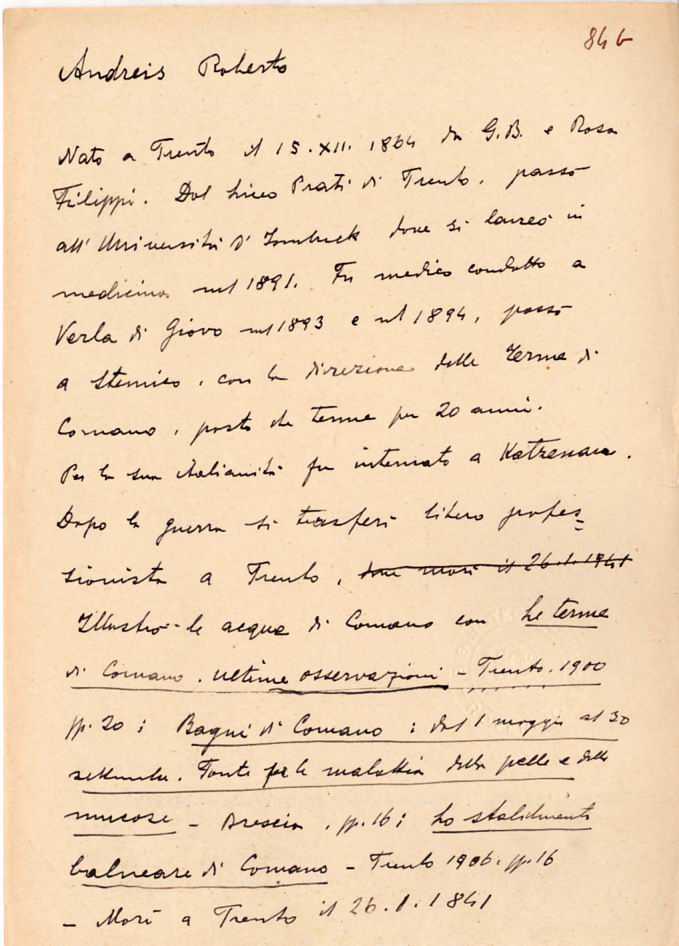 84 b
Andreis Roberto
Nato a Trento il 15.XII.1864 da G.B. e Rosa
Filippi. Dal liceo Prati di Trento, passò
all'Università d'Innsbruck dove si laureò in
medicina nel 1891. Fu medico condotto a
Verla di Giovo nel 1893 e nel 1894, passò
a Stenico, con la direzione delle Terme di
Comano, posto che tenne per 20 anni.
Per la sua italianità fu internato a Katzenau.
Dopo la guerra si trasferì libero profes=
sionista a Trento, dove morì il 26.1.1941
Illustrò le acque di Comano con Le terme
di Comano. Ultime osservazioni - Trento, 1900
pp. 20; Bagni di Comano: dal 1 maggio al 30
settembre. Fonte per le malattie della pelle e delle
mucose - Brescia, pp. 16; Lo stabilimento
balneare di Comano - Trento 1906. pp. 16
- Morì a Trento il 26.1.1841